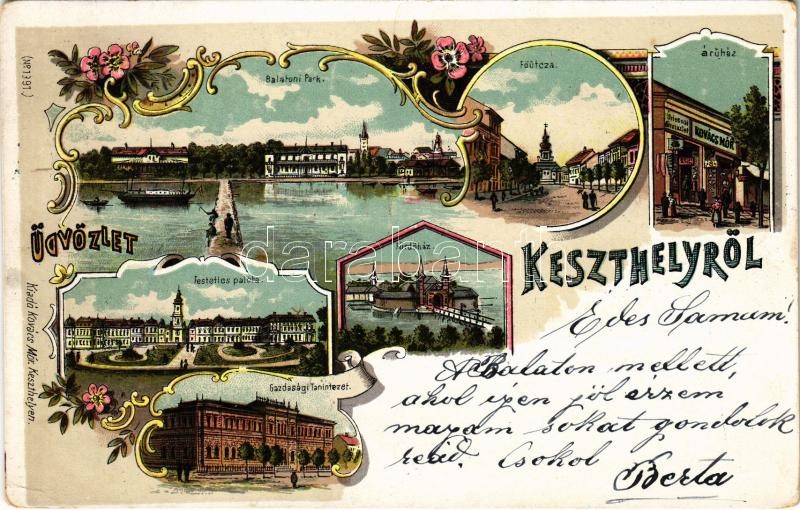 (Nº 1391.)
Balatoni Park.
Főutcza.
áruház
KOVÁCS MÓR
ÜDVÖZLET
KESZTHELYRŐL
darabanth
Festetics palota.
Fürdőház
Gazdasági Tanintézet.
Kiadó Kovács Mór, Keszthelyen.
Édes Samum!
A Balaton mellett,
ahol igen jól érzem
magam sokat gondolok
reád. Csókol
Berta